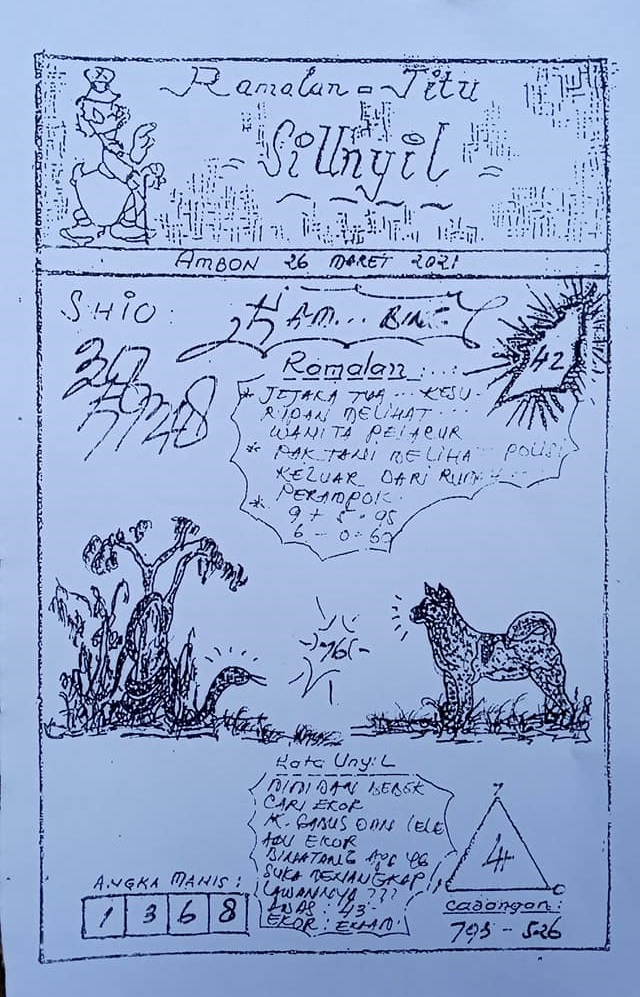 Ramalan = Jitu
SiUnyil
AMBON 26 MARET 2021
SHIO:
KAM... BING
42
Ramalan:...
* JEJAKA TUA ... KESU-
RIPAN MELIHAT ....
WANITA PELACUR
* PAK TANI MELIHA POLISI
KELUAR DARI RUMAH
PERAMPOK.
* 9 + 5 = 95
6 - 0 = 67
-76-
Kata UnyiL
MIMI DAN BEBEK
CARI EKOR
IK. GABUS DAN LELE
ADU EKOR
BINATANG 46
SUKA MENANGKAP
LAWANNYA ???
AWAS: 43
EKOR: ENAM.
ANGKA MANIS:
1 3 6 8
7
4
1 0
Cadangan:
795 - 526